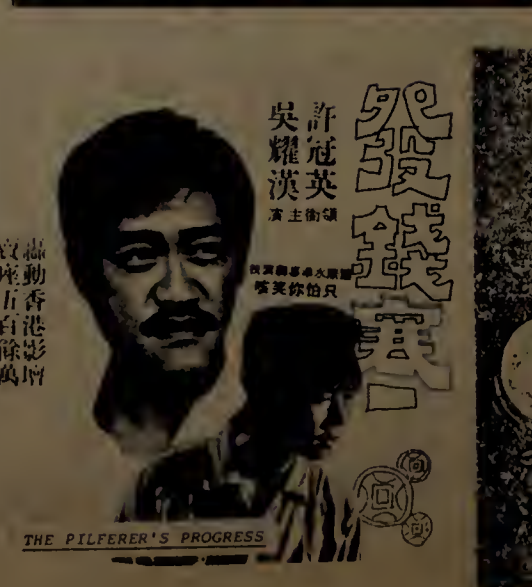 發錢寒
許冠英
吳耀漢
領銜主演
只怕你笑咳
轟動香港影壇
賣座五百餘萬
THE PILFERER'S PROGRESS